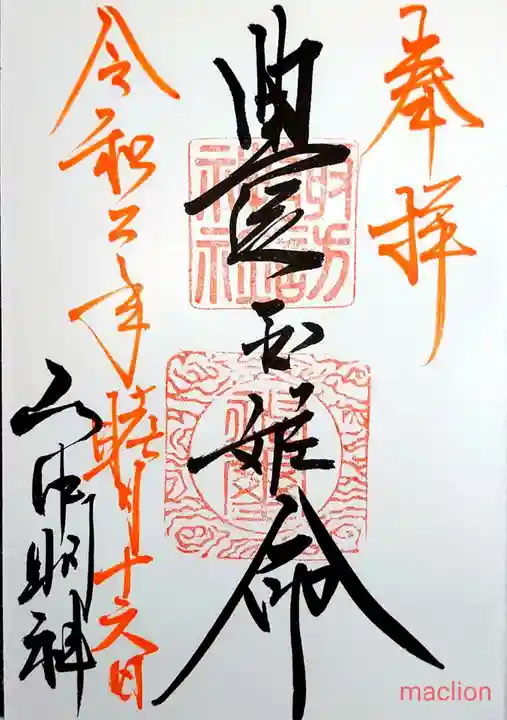 奉拝
豊玉姫命
令和二年睦月十六日
山中明神
maclion